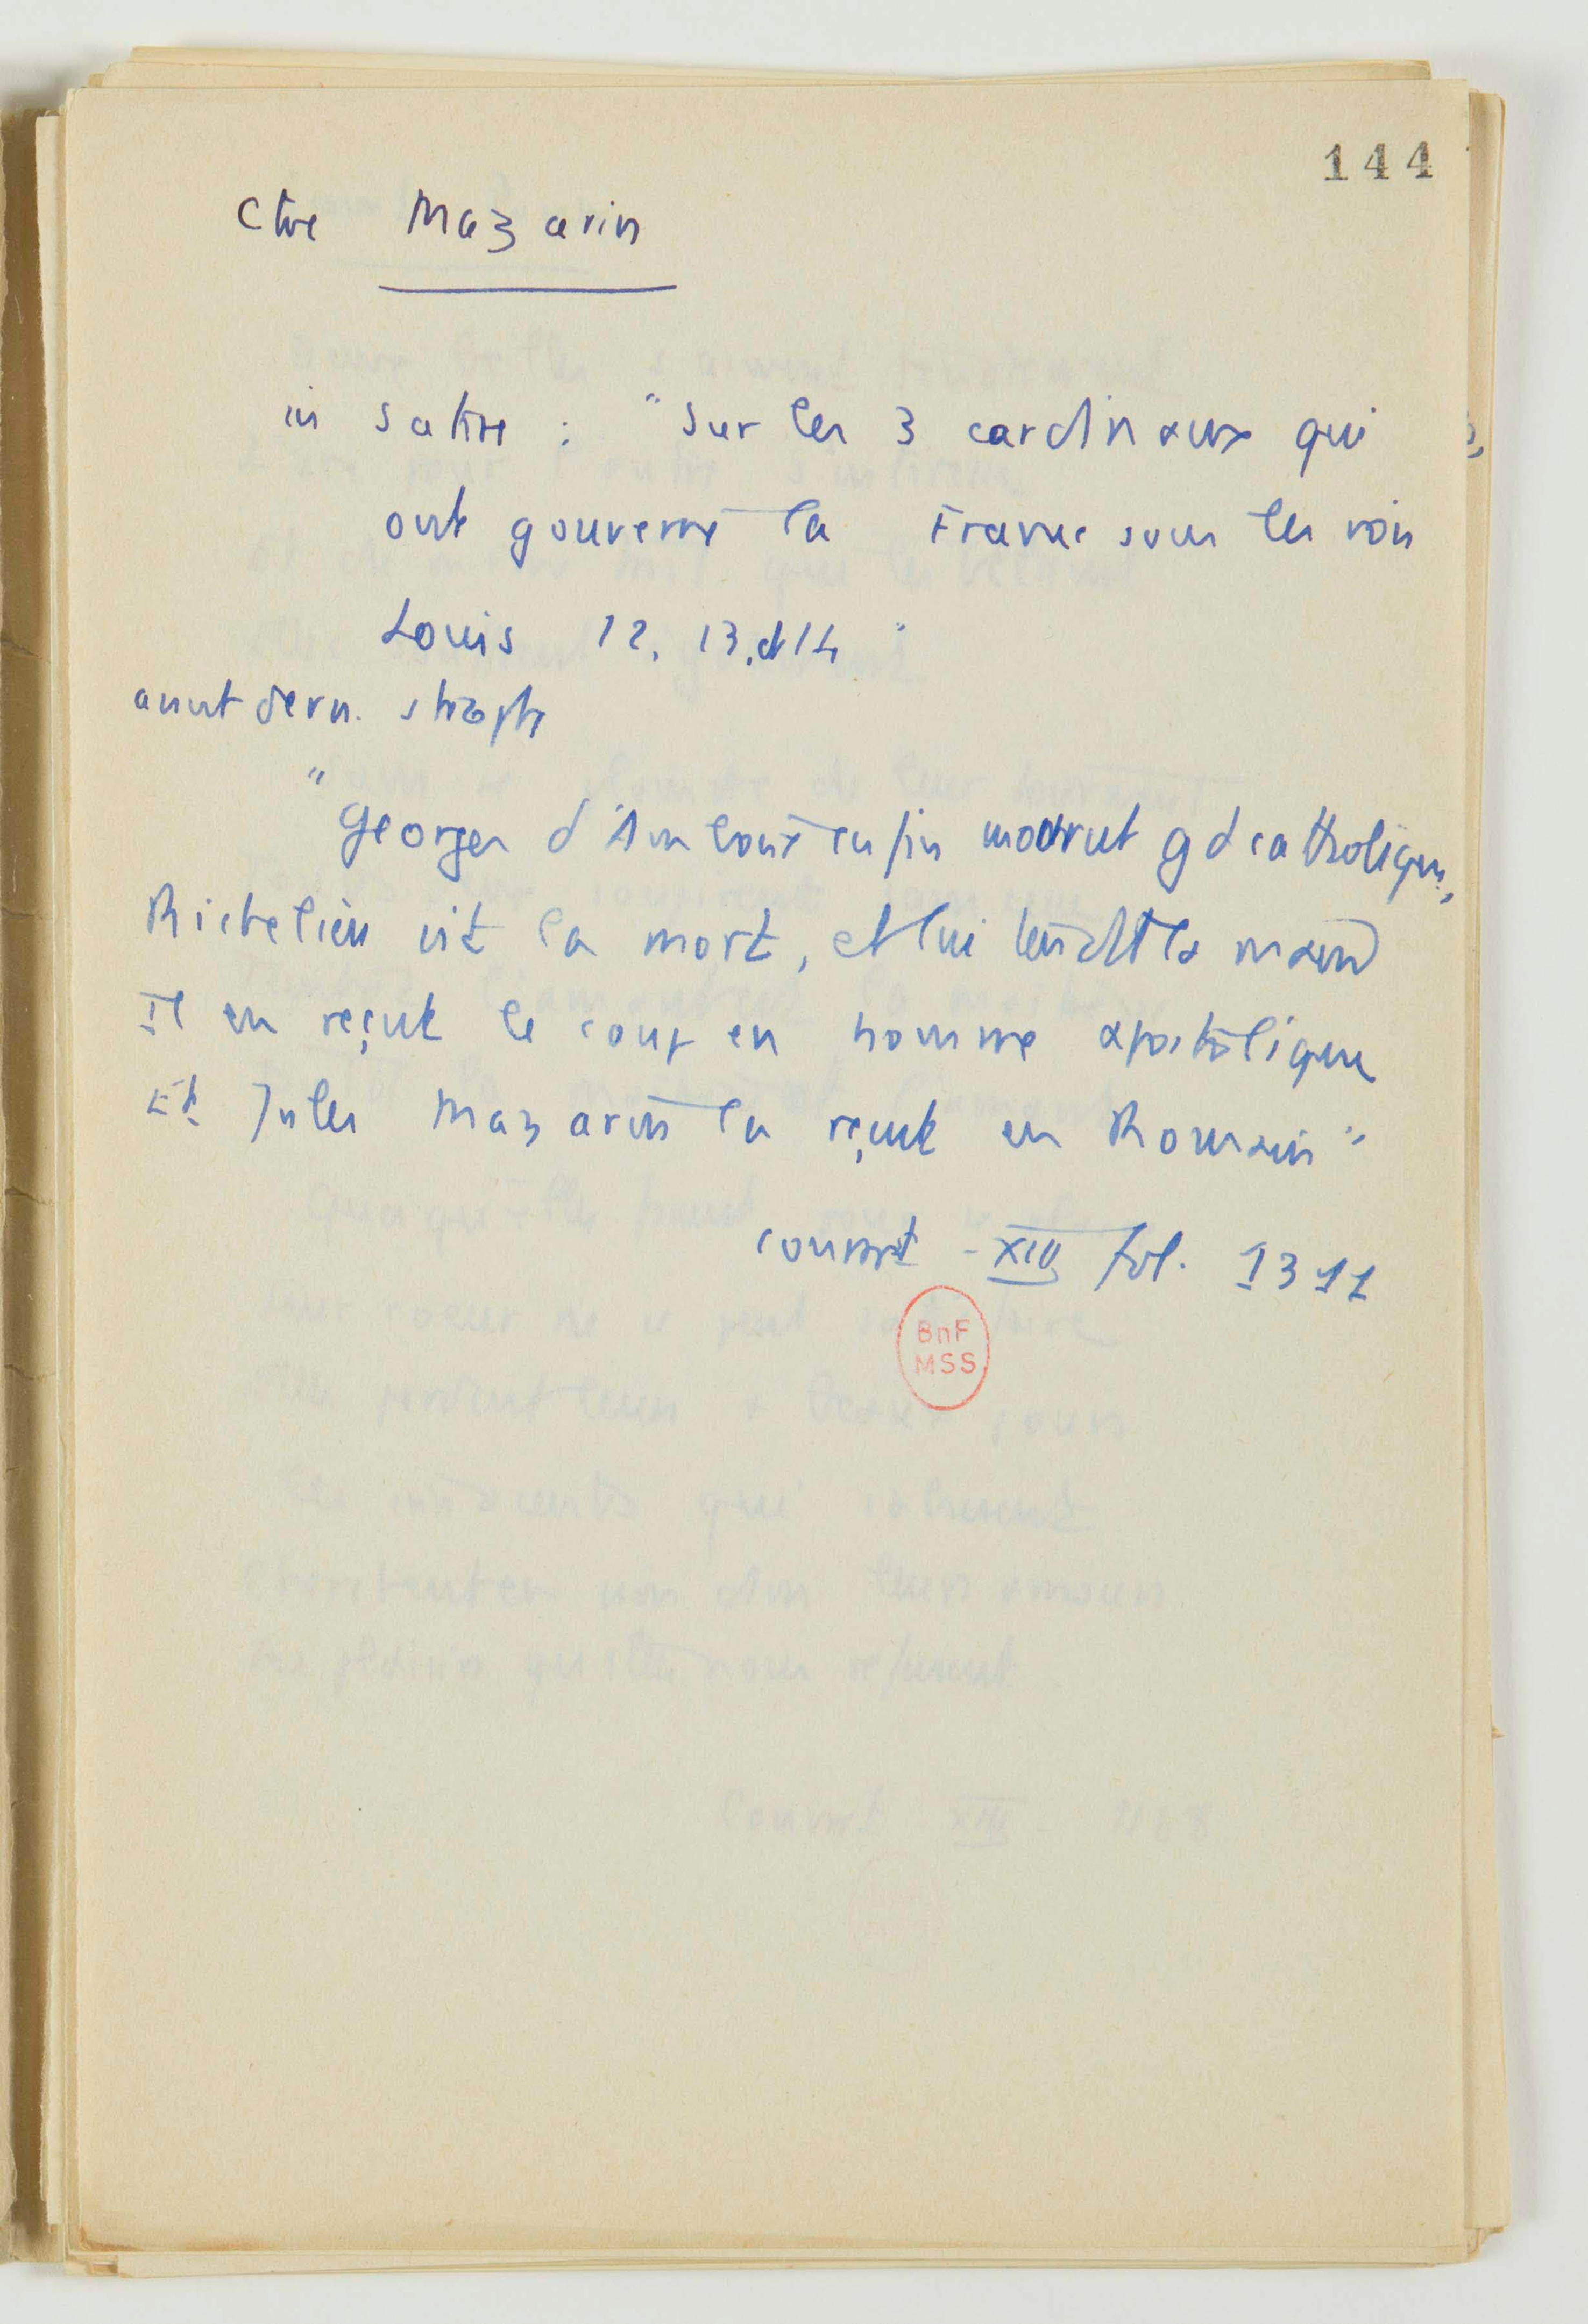 144
Ctre Mazarin
in satire : "Sur les 3 cardinaux qui
ont gouverné la France sous les rois
Louis 12, 13, et 14"
avant dern. strophe
"Georges d'Amboise enfin mourut gd catholique,
Richelieu vit la mort, et lui tendit la main
Il en reçut le coup en homme apostolique
Et Jules Mazarin la reçut en Romain"
Conrart - XIII fol. 1311
BnF
MSS